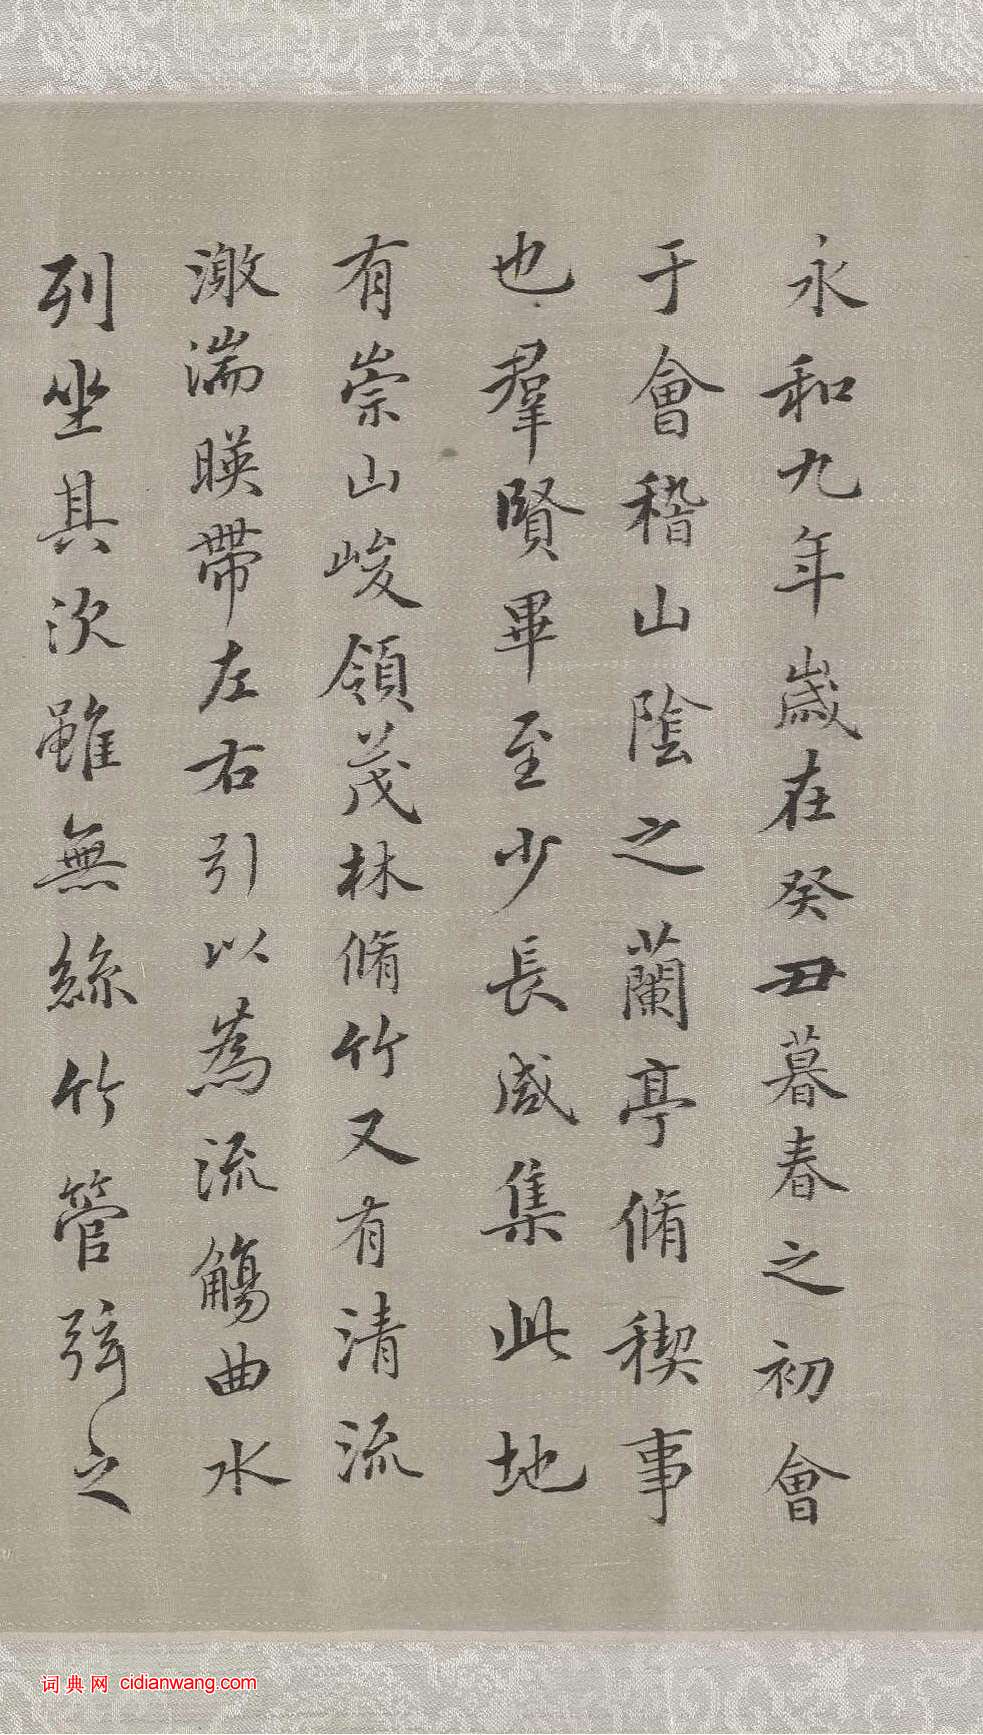 永和九年歲在癸丑暮春之初會
于會稽山陰之蘭亭脩稧事
也羣賢畢至少長咸集此地
有崇山峻領茂林脩竹又有清流
激湍暎帶左右引以為流觴曲水
列坐其次雖無絲竹管弦之
词典网 cidianwang.com